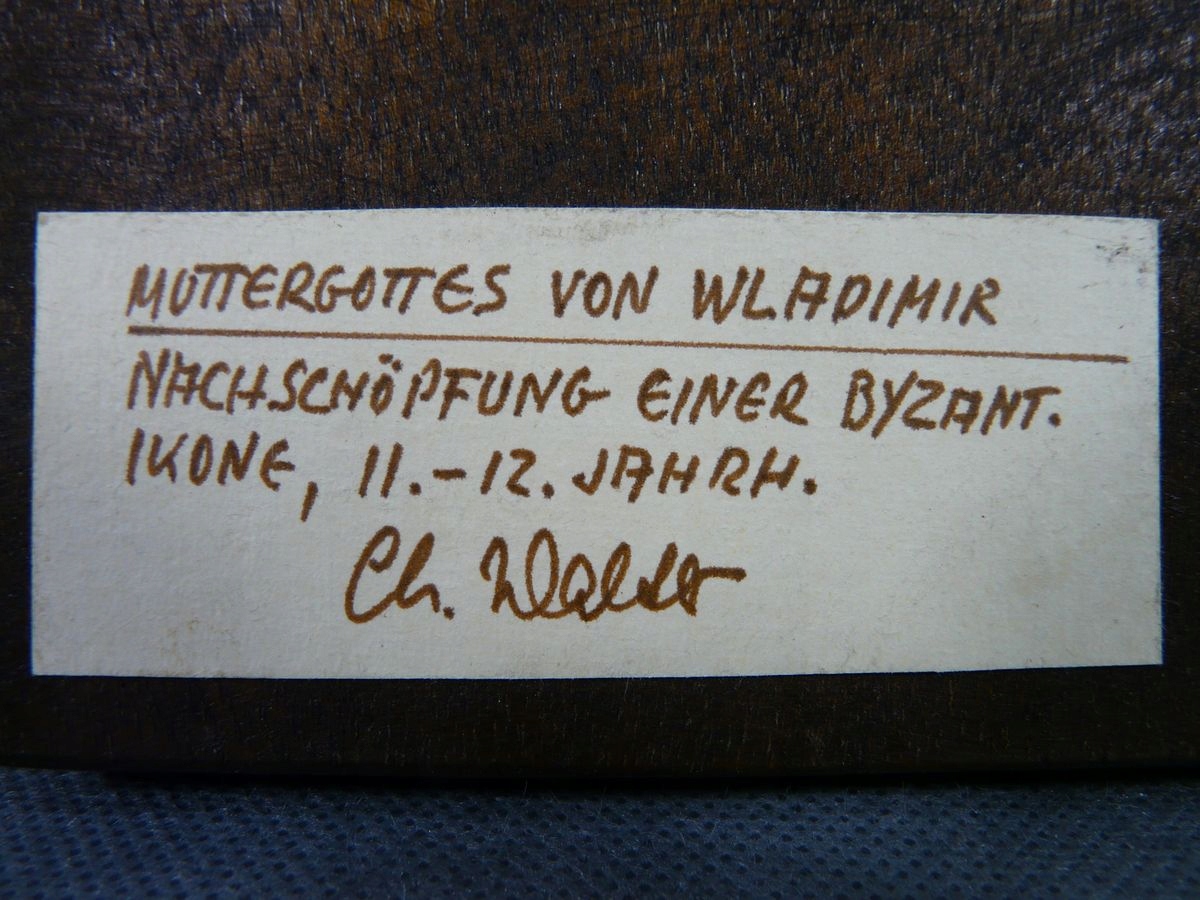 MUTTERGOTTES VON WLADIMIR
NACHSCHÖPFUNG EINER BYZANT.
IKONE, 11.-12. JAHRH.
Ch.